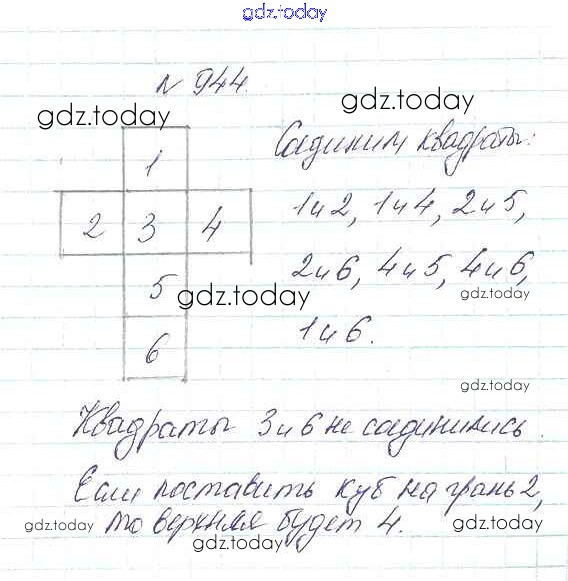 gdz.today
№ 944.
gdz.today
gdz.today
Соединим квадраты:
1
1 и 2, 1 и 4, 2 и 5,
2 3 4
2 и 6, 4 и 5, 4 и 6,
5
gdz.today
gdz.today
1 и 6.
6
gdz.today
Квадраты 3 и 6 не соединились.
Если поставить куб на грань 2,
то верхняя будет 4.
gdz.today
gdz.today
gdz.today